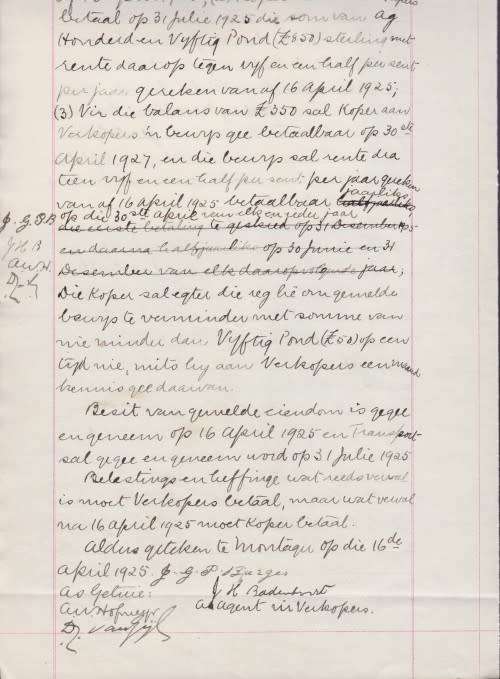 betaal op 31 Julie 1925 die som van Ag
Honderd en Vyftig Pond (£850) sterling met
rente daarop tegen vyf en een half per sent
per jaar gereken vanaf 16 April 1925;
(3) Vir die balans van £350 sal Koper aan
Verkopers 'n bewys gee betaalbaar op 30ste
April 1927, en die bewys sal rente dra
teen vyf en een half per sent per jaar gereken
vanaf 16 April 1925 betaalbaar halfjaarliks jaarliks
op die 30ste April van elk en ieder jaar
die eerste betaling te geskied op 31 Desember 1925
en daarna halfjaarliks op 30 Junie en 31
Desember van elk daaropvolgende jaar;
J. G. P. B
J H B
A.W.H.
Die Koper sal egter die reg hê om gemelde
bewys te verminder met somme van
nie minder dan Vyftig Pond (£50) op een
tyd nie, mits hy aan Verkopers een maand
kennis gee daarvan.
Besit van gemelde eiendom is gegee
en geneem op 16 April 1925 en Transport
sal gegee en geneem word op 31 Julie 1925
Belastings en heffinge wat reeds verval
is moet Verkopers betaal, maar wat verval
na 16 April 1925 moet Koper betaal.
Aldus geteken te Montagu op die 16de
April 1925. J. G. P. Burger
As Getuie: J H Badenhorst
A.W. Hofmeyr as agent vir Verkopers.
D. J. van Zijl